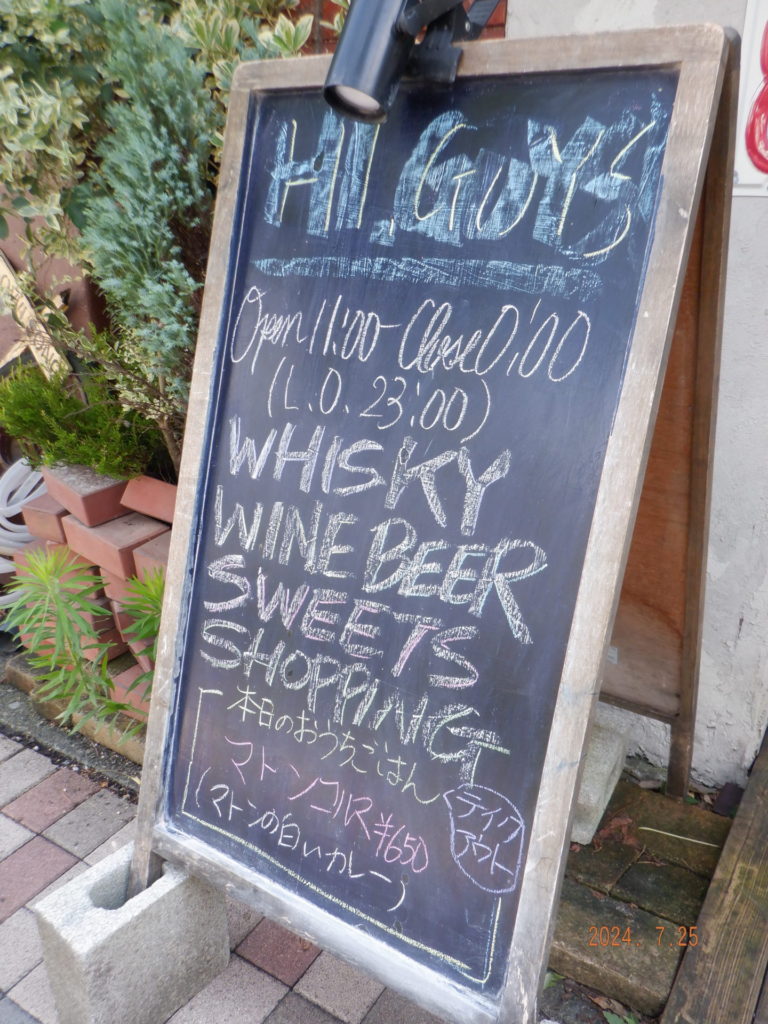 HI, GUYS
Open 11:00 - Close 0:00
(L.O. 23:00)
WHISKY
WINE BEER
SWEETS
SHOPPING
本日のおうちごはん
マトンコルマ ¥650
(マトンの白いカレー)
テイク
アウト
2024. 7.25